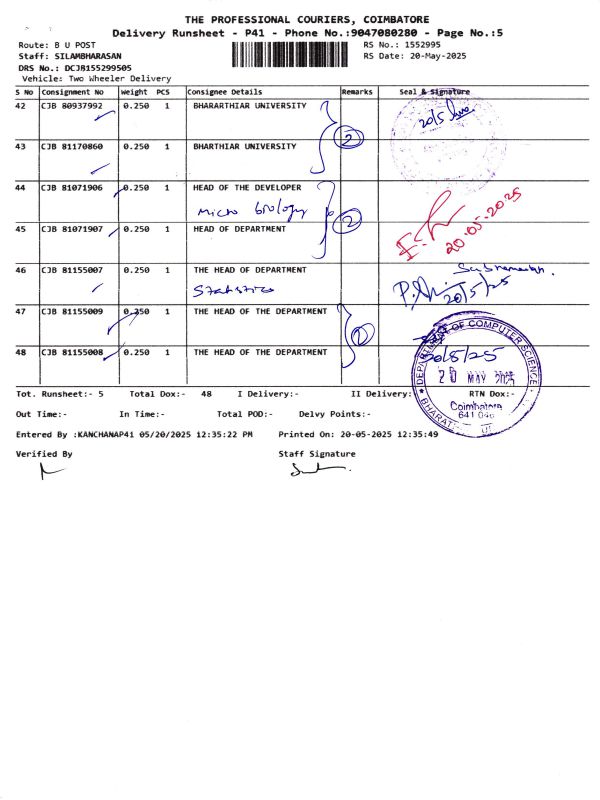 THE PROFESSIONAL COURIERS, COIMBATORE
Delivery Runsheet - P41 - Phone No.:9047080280 - Page No.:5
Route: B U POST RS No.: 1552995
Staff: SILAMBHARASAN RS Date: 20-May-2025
DRS No.: DCJB155299505
Vehicle: Two Wheeler Delivery
S No Consignment No Weight PCS Consignee Details Remarks Seal & Signature
42 CJB 80937992 0.250 1 BHARARTHIAR UNIVERSITY 20/5
2
43 CJB 81170860 0.250 1 BHARTHIAR UNIVERSITY
44 CJB 81071906 0.250 1 HEAD OF THE DEVELOPER
Micro biology 2 20.05.2025
45 CJB 81071907 0.250 1 HEAD OF DEPARTMENT
46 CJB 81155007 0.250 1 THE HEAD OF DEPARTMENT
Statistics 20/5/25
47 CJB 81155009 0.250 1 THE HEAD OF THE DEPARTMENT
48 CJB 81155008 0.250 1 THE HEAD OF THE DEPARTMENT
20/5/25
DEPARTMENT OF COMPUTER SCIENCE
20 MAY 2025
Coimbatore
641 046
Tot. Runsheet:- 5 Total Dox:- 48 I Delivery:- II Delivery: RTN Dox:-
Out Time:- In Time:- Total POD:- Delvy Points:-
Entered By :KANCHANAP41 05/20/2025 12:35:22 PM Printed On: 20-05-2025 12:35:49
Verified By Staff Signature